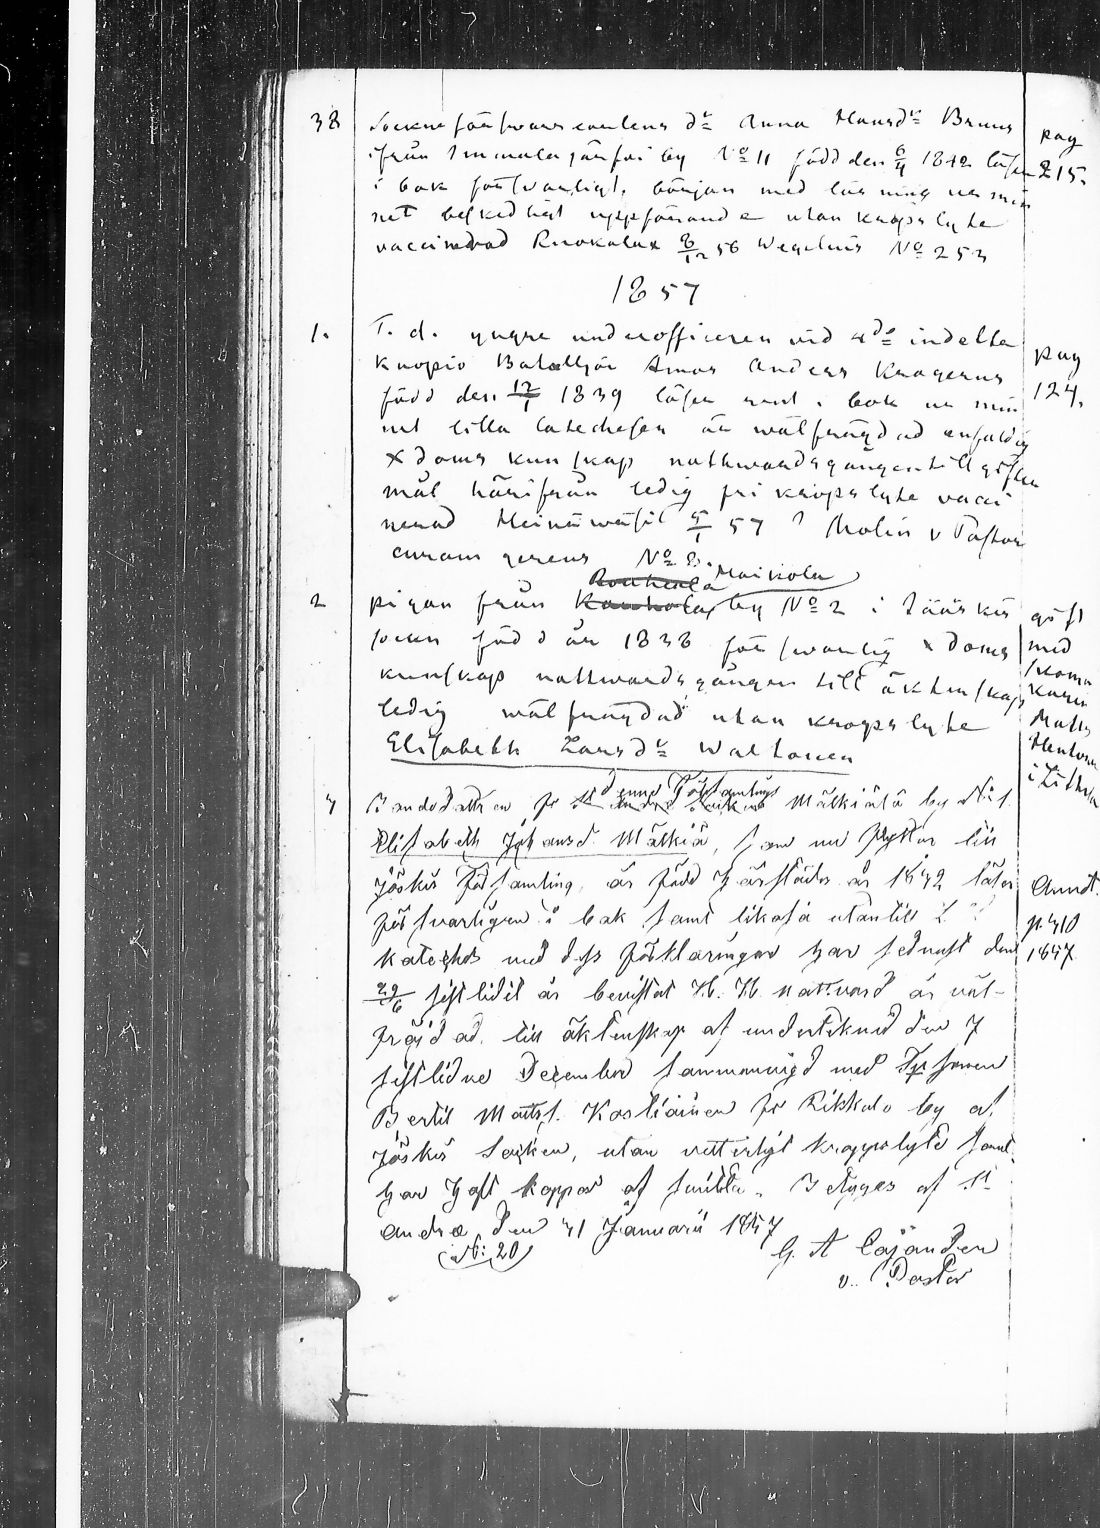 38 Sockneförsvarskarlens dr Anna Hansdr Bruus pag
ifrån Immalanjärfvi by No 11 född den 6/4 1842 läser 215.
i bok försvarligt, början med läsning ur min
net beskedligt uppförande utan kropslyte
vaccinerad Ruokolax 8/12 56 Wegelius No 253
1857
1. T. d. yngre underofficeren vid 4de indelta
Kuopio Bataljon Amos Anders Kragerus pag
född den 17/1 1839 läser rent i bok ur min 124.
net lilla catechesen är wälfrägdad enfaldig
xdoms kunskap nattwardsgången till gifter
mål härifrån ledig fri kropslyte vacci
nerad Heinäwäsi 5/1 57 Molin v Pastor
curam gerens No 8.
Maikola
2 pigan från by No 2 i Jääskis gift
socken född år 1838 försvarlig xdoms med
kunskap nattwardsgången till äktenskap
ledig wälfrägdad utan kropslyte Matts
Elisabeth Larsdr Waltonen
denna Församlings
3 Bondedottren fr Mälkiälä by No 1.
Elisabeth Johansd. Mälkiä, som nu flyttar till
Jäskis Församling, är född härstädes år 1832 läser Annot.
försvarligen i bok samt likaså utantill p. 310
kateches med dess förklaringar har sednast den 1857
29/6 sistlidit år bevistat H. H. nattvard är väl-
fräjdad, till äktenskap af undertecknad den 7
sistlidne December sammanvigd med
Bertil Matss. Kostiainen fr Rikkola by af
Jäskis Socken, utan vetterligt kroppslyte samt
har haft koppor af smitta. Betyges af St
Andræ den 31 Januarii 1857
(No: 20) G. A Cajander
v. Pastor